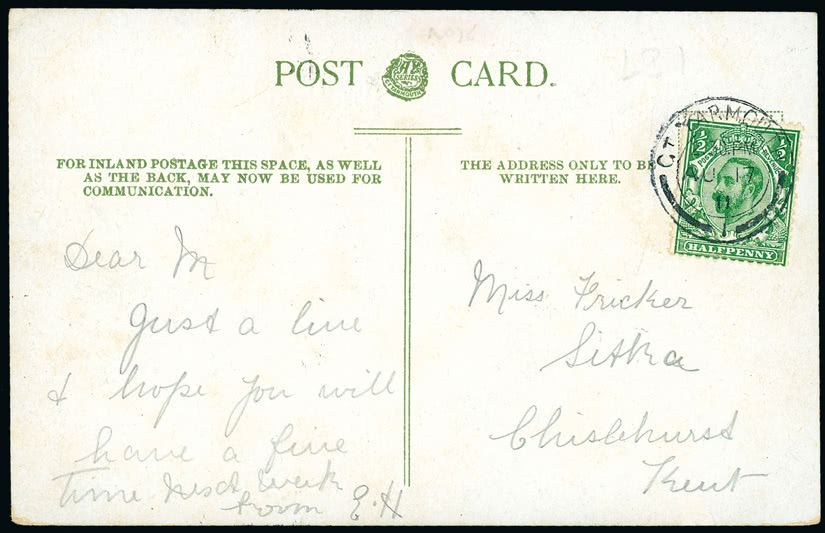 POST CARD.
FOR INLAND POSTAGE THIS SPACE, AS WELL
AS THE BACK, MAY NOW BE USED FOR
COMMUNICATION.
THE ADDRESS ONLY TO BE
WRITTEN HERE.
GT YARMO
AU 17
11
1/2 1/2
HALFPENNY
Dear M
Just a line
& hope you will
have a fine
time next week
from E.H
Miss Fricker
Sitka
Chislehurst
Kent